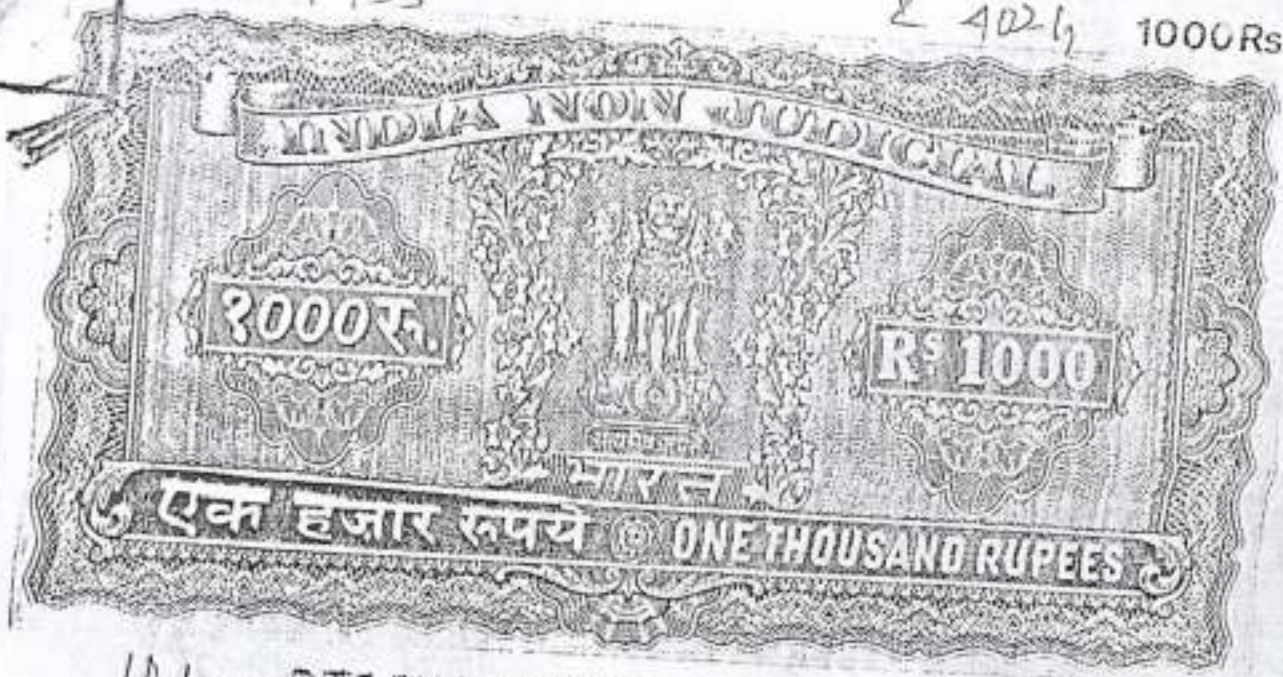 1000 Rs
INDIA NON JUDICIAL
१000रु.
Rs 1000
भारत
एक हजार रुपये ONE THOUSAND RUPEES